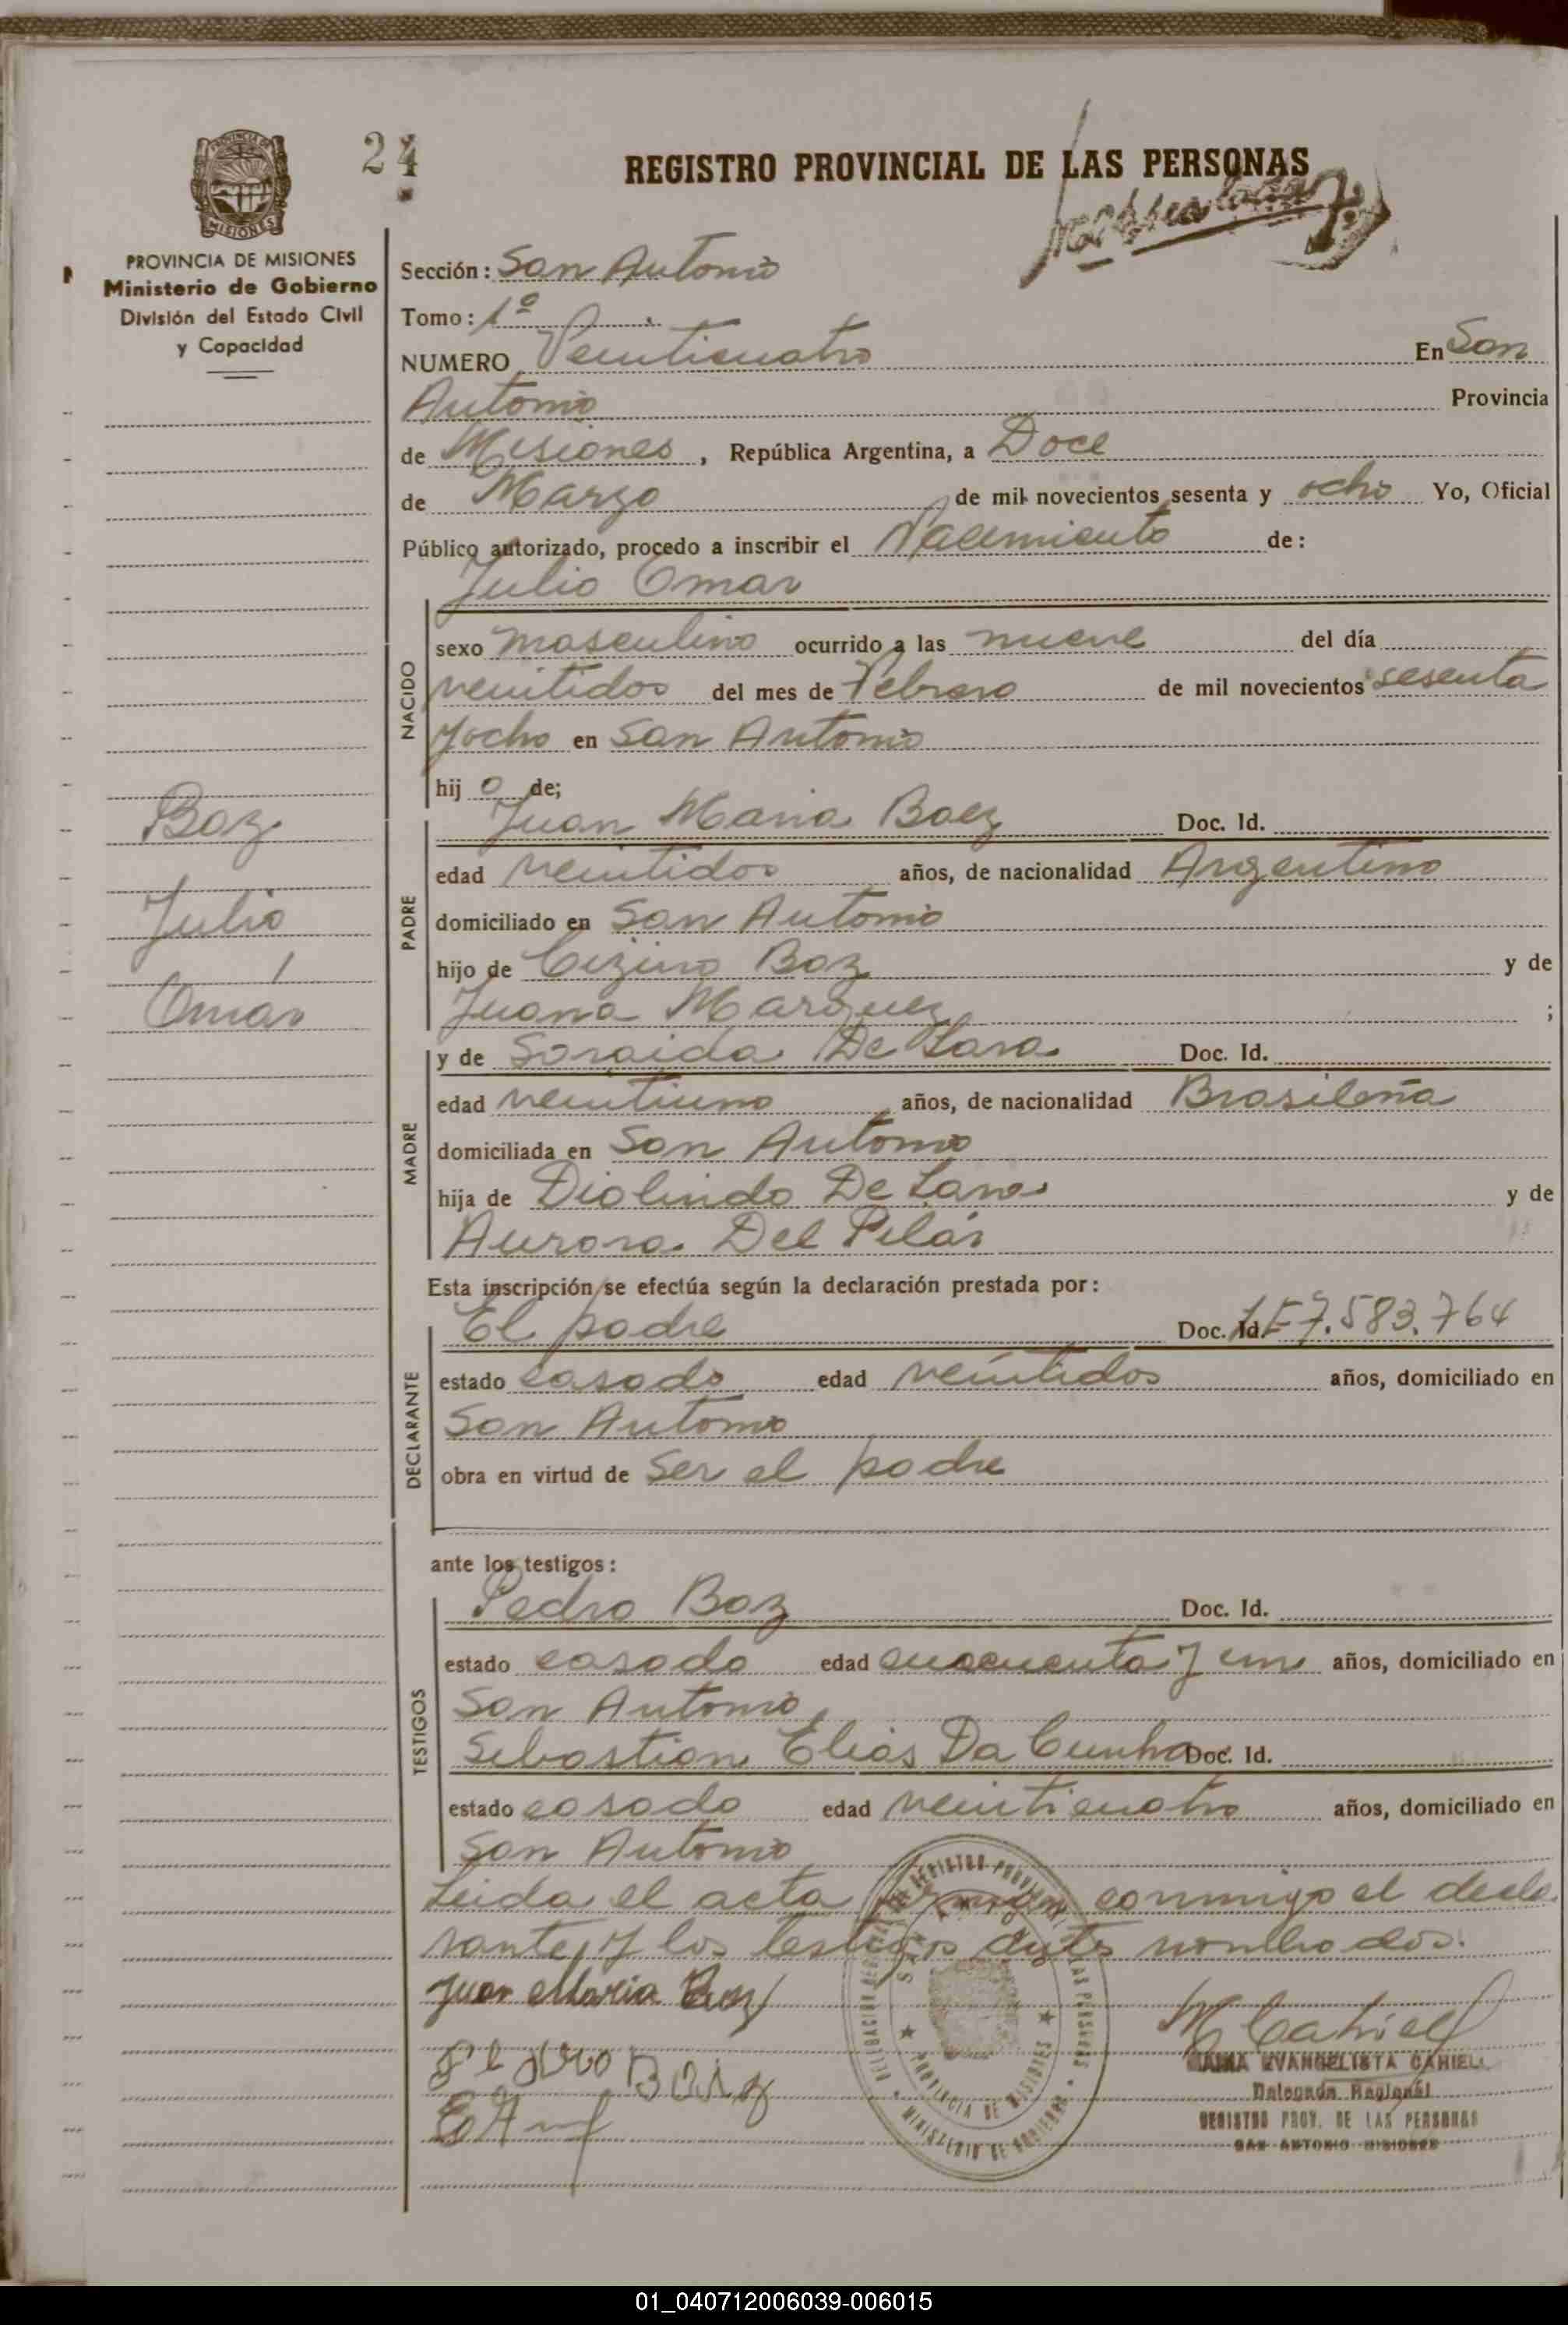 24
REGISTRO PROVINCIAL DE LAS PERSONAS
PROVINCIA DE
MISIONES
PROVINCIA DE MISIONES
Ministerio de Gobierno
División del Estado Civil
y Capacidad
Sección: San Antonio
Tomo: 1º
NUMERO Veinticuatro En San
Antonio Provincia
de Misiones, República Argentina, a Doce
de Marzo de mil novecientos sesenta y ocho Yo, Oficial
Público autorizado, procedo a inscribir el Nacimiento de:
Julio Omar
NACIDO
sexo masculino ocurrido a las nueve del día
veintidos del mes de Febrero de mil novecientos sesenta
y ocho en San Antonio
hij o de;
Baz
Julio
Omár
PADRE
Juan Maria Baez Doc. Id.
edad veintidos años, de nacionalidad Argentino
domiciliado en San Antonio
hijo de Cizino Baz y de
Juana Marquez ;
MADRE
y de Soraida De Lara Doc. Id.
edad veintiuno años, de nacionalidad Brasileña
domiciliada en San Antonio
hija de Diolindo De Lara y de
Aurora Del Pilár
Esta inscripción se efectúa según la declaración prestada por:
DECLARANTE
El padre Doc. Id. 7.583.764
estado casado edad veintidos años, domiciliado en
San Antonio
obra en virtud de ser el padre
ante los testigos:
TESTIGOS
Pedro Baz Doc. Id.
estado casado edad cuarenta y un años, domiciliado en
San Antonio
Sebastian Elias Da Cunha Doc. Id.
estado casado edad veinticuatro años, domiciliado en
San Antonio
Leida el acta firman conmigo el decla
rante, y los testigos antes nombrados.
Juan Maria Baez
Pedro Baiz
M Cahiel
MARIA EVANGELISTA CAHIEL
Delegada Regional
REGISTRO PROV. DE LAS PERSONAS
SAN ANTONIO MISIONES
PROVINCIA DE MISIONES
MINISTERIO DE GOBIERNO
01_040712006039-006015